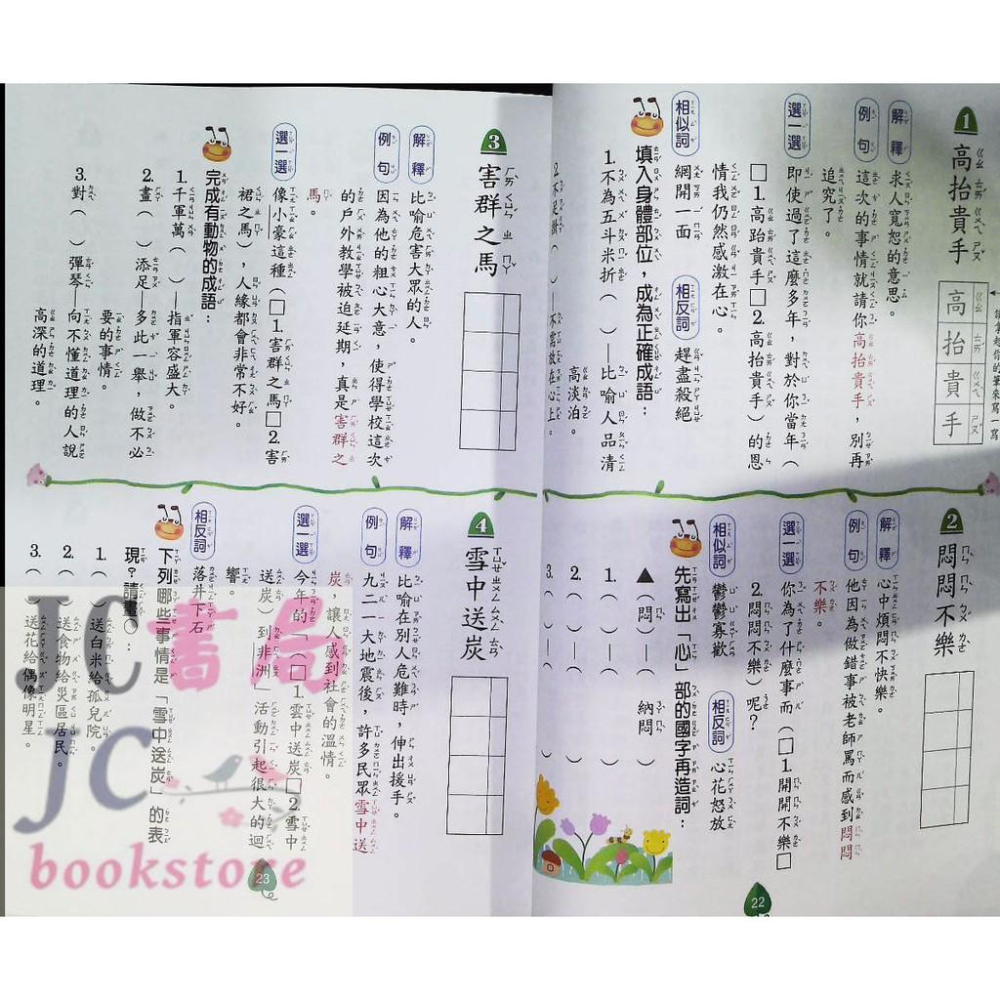 1
高抬貴手
高抬貴手
解釋
求人寬恕的意思。
例句
這次的事情就請你高抬貴手，別再
追究了。
選一選
即使過了這麼多年，對於你當年（
□1.高跆貴手□2.高抬貴手）的恩
情我仍然感激在心。
相似詞 網開一面 相反詞 趕盡殺絕
填入身體部位，成為正確成語：
1.不為五斗米折（ ）—比喻人品清
高淡泊。
2
悶悶不樂
解釋 心中煩悶不快樂。
例句 他因為做錯事被老師罵而感到悶悶
不樂。
選一選 你為了什麼事而（□1.開開不樂□
2.悶悶不樂）呢？
相似詞 鬱鬱寡歡 相反詞 心花怒放
先寫出「心」部的國字再造詞：
▲（悶）—（ 納悶 ）
1.（ ）—（ ）
2.（ ）—（ ）
3.（ ）—（ ）
22
3
害群之馬
解釋 比喻危害大眾的人。
例句 因為他的粗心大意，使得學校這次
的戶外教學被迫延期，真是害群之
馬。
選一選 像小豪這種（□1.害群之馬□2.害
裙之馬），人緣都會非常不好。
完成有動物的成語：
1.千軍萬（ ）—指軍容盛大。
2.畫（ ）添足—多此一舉，做不必
要的事情。
3.對（ ）彈琴—向不懂道理的人說
高深的道理。
4
雪中送炭
解釋 比喻在別人危難時，伸出援手。
例句 九二一大地震後，許多民眾雪中送
炭，讓人感到社會的溫情。
選一選 今年的「（□1.雲中送炭□2.雪中
送炭）到非洲」活動引起很大的迴
響。
相反詞 落井下石
下列哪些事情是「雪中送炭」的表
現？請畫○：
1.（ ）送白米給孤兒院。
2.（ ）送食物給災區居民。
3.（ ）送花給偶像明星。
23
JC書局
JC
bookstore